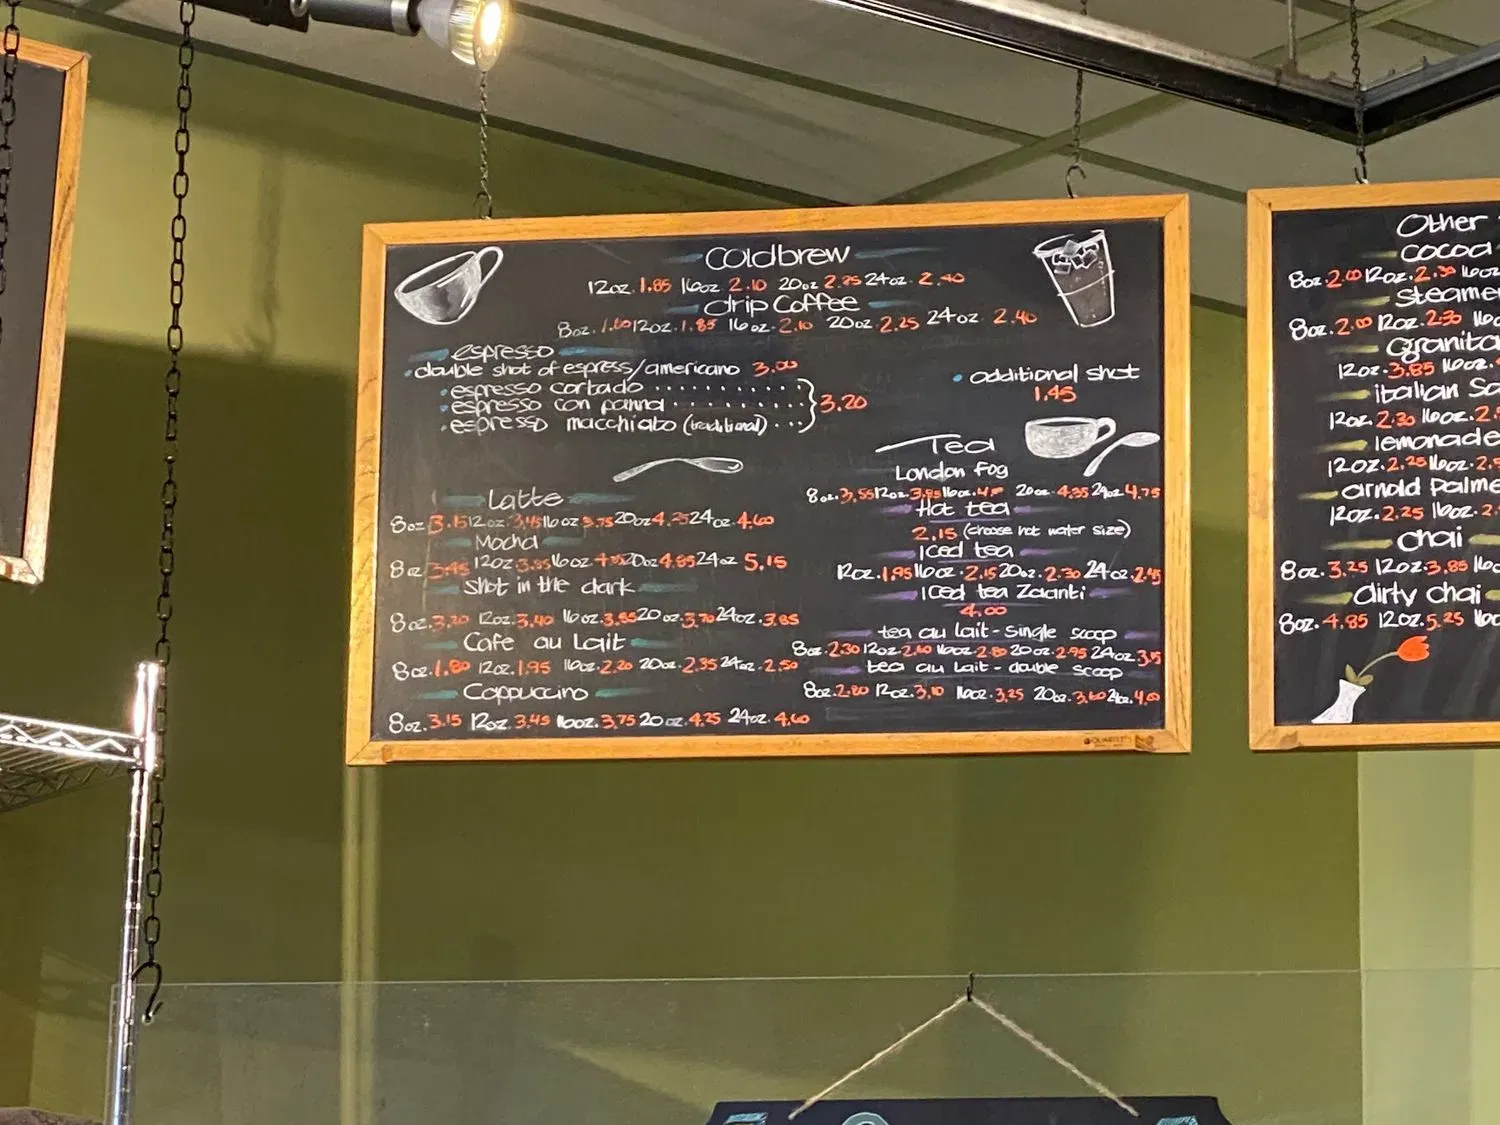 Coldbrew
12oz. 1.85 16oz 2.10 20oz 2.25 24oz. 2.40
drip Coffee
8oz. 1.60 12oz. 1.85 16oz. 2.10 20oz 2.25 24oz 2.40
espresso
double shot of espress/americano 3.00
espresso cortado
espresso con panna
espresso macchiato (traditional)
3.20
additional shot
1.45
Latte
8oz 3.15 12oz 3.45 16oz 3.75 20oz 4.25 24oz 4.60
Mocha
8oz 3.45 12oz 3.85 16oz 20oz 4.85 24oz 5.15
Shot in the dark
8oz. 3.20 12oz. 3.40 16oz. 3.55 20oz. 3.70 24oz. 3.85
Cafe au Lait
8oz. 1.80 12oz. 1.95 16oz. 2.20 20oz. 2.35 24oz. 2.50
Cappuccino
8oz. 3.15 12oz. 3.45 16oz. 3.75 20oz. 4.25 24oz. 4.60
Tea
London Fog
8oz. 3.55 12oz. 3.85 16oz. 20oz. 4.35 24oz. 4.75
Hot tea
2.15 (choose hot water size)
Iced tea
12oz. 1.95 16oz. 2.15 20oz. 2.30 24oz. 2.45
Iced tea
4.00
tea au lait - single scoop
8oz. 2.30 12oz. 2.60 16oz. 2.80 20oz. 2.95 24oz. 3.15
tea au lait - double scoop
8oz. 2.80 12oz. 3.10 16oz. 3.25 20oz. 3.60 24oz. 4.00
QUARTET
Other
cocoa
8oz. 2.00 12oz. 2.30 16oz
steamer
8oz. 2.00 12oz. 2.30
granita
12oz. 3.85 16oz.
italian So
12oz. 2.30 16oz. 2.
lemonade
12oz. 2.25 16oz. 2.
arnold palme
12oz. 2.25 16oz. 2.
chai
8oz. 3.25 12oz. 3.85
dirty chai
8oz. 4.85 12oz. 5.25